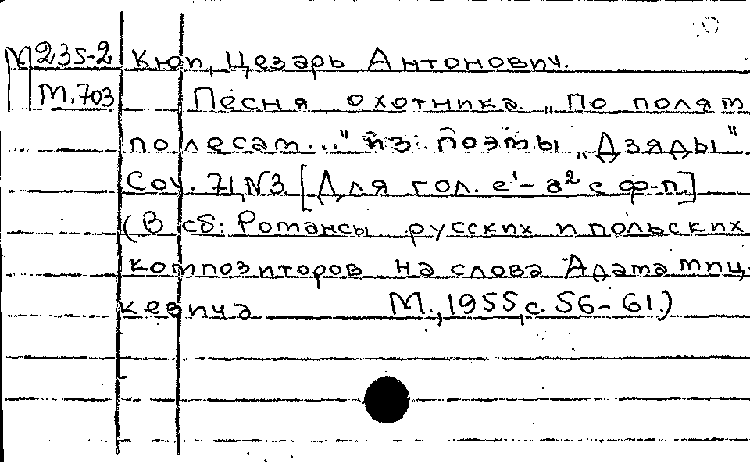 М235-2 Кюи, Цезарь Антонович.
М.703 Песня охотника. „По полям
по лесам..." из поэмы „Дзяды".
Соч. 71, N3 [Для гол. e¹-a² с ф-п.]
(В сб: Романсы русских и польских
композиторов на слова Адама Миц-
кевича М., 1955, с. 56-61.)